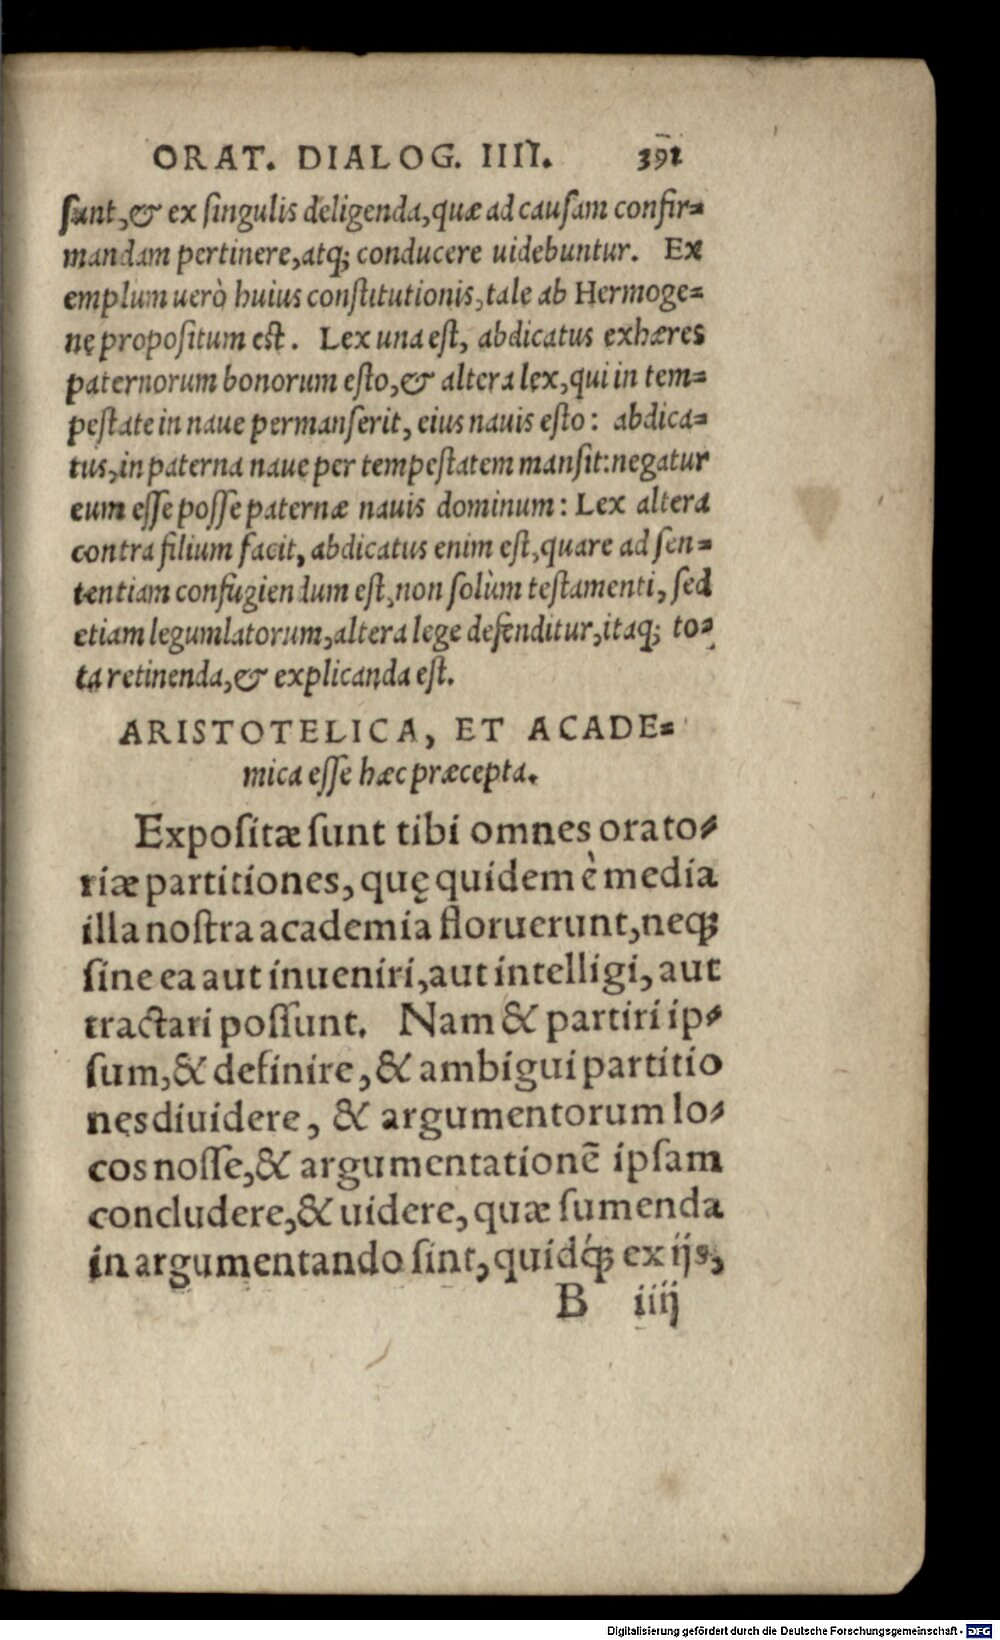 ORAT. DIALOG. IIII. 391
sunt, & ex singulis deligenda, quæ ad causam confir=
mandam pertinere, atq; conducere uidebuntur. Ex
emplum uerò huius constitutionis, tale ab Hermoge=
ne propositum est. Lex una est, abdicatus exhæres
paternorum bonorum esto, & altera lex, qui in tem=
pestate in naue permanserit, eius nauis esto: abdica=
tus, in paterna naue per tempestatem mansit: negatur
eum esse posse paternæ nauis dominum: Lex altera
contra filium facit, abdicatus enim est, quare ad sen=
tentiam confugiendum est, non solùm testamenti, sed
etiam legumlatorum, altera lege defenditur, itaq; to=
ta retinenda, & explicanda est.
ARISTOTELICA, ET ACADE=
mica esse hæc præcepta.
Expositæ sunt tibi omnes orato=
riæ partitiones, quę quidem è media
illa nostra academia floruerunt, neq;
sine ea aut inueniri, aut intelligi, aut
tractari possunt. Nam & partiri ip=
sum, & definire, & ambigui partitio
nes diuidere, & argumentorum lo=
cos nosse, & argumentationē ipsam
concludere, & uidere, quæ sumenda
in argumentando sint, quidq́; ex ijs,
B iiij
Digitalisierung gefördert durch die Deutsche Forschungsgemeinschaft - DFG